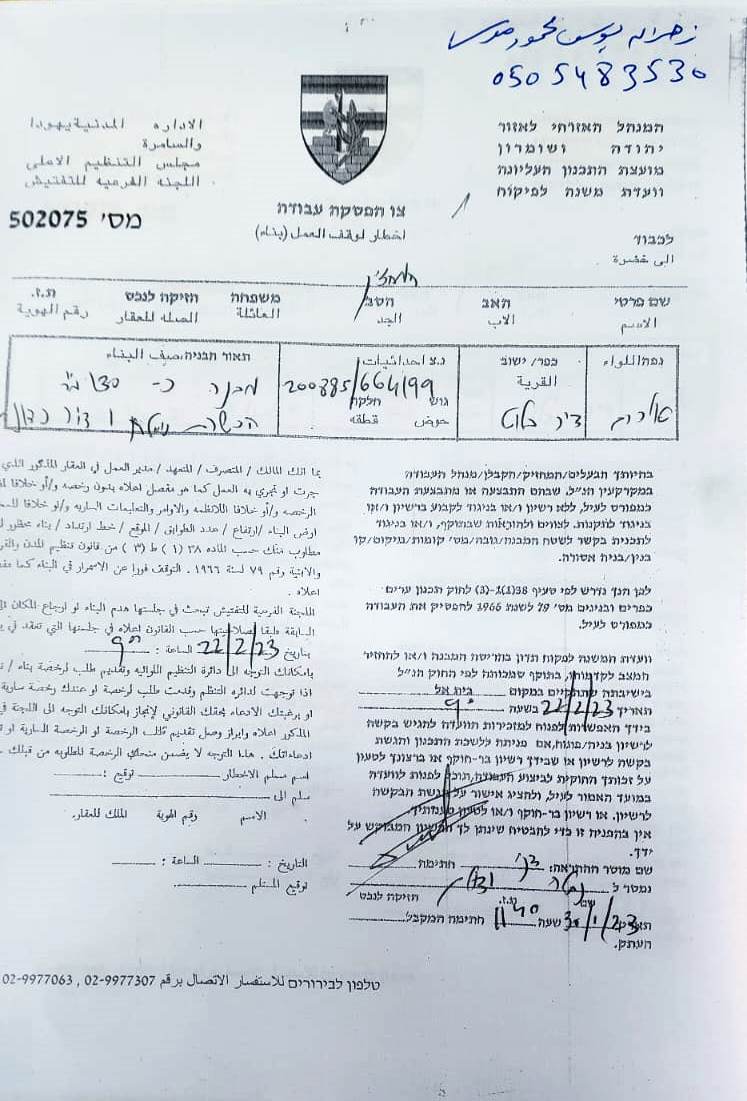 زهراء يوسف محمود موسى
0505483530
המנהל האזרחי לאזור
יהודה ושומרון
מועצת התכנון העליונה
וועדת משנה לפיקוח
الاداره المدنية يهودا
والسامرة
مجلس التنظيم الاعلى
اللجنه الفرعيه للتفتيش
צו הפסקת עבודה
מס' 502075
اخطار لوقف العمل (بناء)
לכבוד
الى حضرة
המחזיק
שם פרטי האב הסב משפחה חזיקה לנכס ת.ז.
الاسم الاب الجد العائلة الصله للعقار رقم الهوية
נפה/اللواء כפר/ ישוב נ.צ احداثيات תאור הבניה/وصف البناء
القرية 200785/664199 מבנה כ- 130 מ"ר
גוש חלקה
حوض قطعه
דיר בלוט
בהיותך הבעלים/המחזיק/הקבלן/מנהל העבודה
במקרקעין הנ"ל. שבהם התבצעה או מתבצעת העבודה
כמפורט לעיל, ללא רשיון ו/או בניגוד לקבוע ברשיון ו/או
בניגוד לתקנות. לצווים ולהוראות שבתוקף, ו/או בניגוד
לתכנית בקשר לשטח המבנה/גובה/מס' קומות/מיקום/קו
בנין/בניה אסורה.
לכן הנך נדרש לפי סעיף 38(1)-(3) לחוק תכנון ערים
כפרים ובנינים מס' 79 לשנת 1966 להפסיק את העבודה
כמפורט לעיל.
וועדת המשנה לפקוח תדון בהריסת המבנה ו/או להחזיר
המצב לקדמותו, בתוקף סמכותה לפי החוק הנ"ל
בישיבתה שתתקיים במקום בית אל
תאריך 22/2/23 בשעה 9°°
בידך האפשרות לפנות למזכירות הוועדה להגיש בקשה
לרשיון בניה/פטור, אם פניתה ללשכת התכנון והגשת
בקשה לרשיון או שבידך רשיון בר-תוקף או ברצונך לטעון
על זכותך החוקית לביצוע העבודה, תוכל לפנות לוועדה
במועד האמור לעיל, ולהציג אישור על הגשת הבקשה
לרשיון. או רשיון בר-תוקף ו/או לטעון טענותיך
אין בהפניה זו כדי להבטיח שינתן לך הרשיון המבוקש על
ידך.
שם מוסר ההתראה: חתימה
נמסר ל
שם ת.ז. חזיקה לנכס
תאריך 30/1/23 שעה 11:40 חתימת המקבל
העתק.
بما انك المالك / المتصرف / المتعهد / مدير العمل في العقار المذكور الذي
جرت او تجري به العمل كما هو مفصل اعلاه بدون رخصه و/أو خلافا
الرخصه و/أو خلافا للانظمه والاوامر والتعليمات الساريه و/او خلافا
ارض البناء /ارتفاع / عدد الطوابق / الموقع / خط ارتداد / بناء محظور
مطلوب منك حسب الماده ٣٨ (١) ط (٣) من قانون تنظيم المدن والقرى
والابنية رقم ٧٩ لسنة ١٩٦٦ . التوقف فورا عن الاستمرار في البناء كما
اعلاه .
اللجنه الفرعية للتفتيش تبحث في جلستها هدم البناء او ارجاع المكان
السابقة طبقا لصلاحيتها حسب القانون اعلاه في جلستها التي تعقد في
بتاريخ 22/2/23 الساعة : 9°°
بامكانك التوجه الى دائرة التنظيم اللوائيه وتقديم طلب لرخصة بناء /
اذا توجهت لدائره التنظم وقدمت طلب لرخصة او عندك رخصة سارية
او برغبتك الادعاء بحقك القانوني لإنجاز بامكانك التوجه الى اللجنة في
المذكور اعلاه وابراز وصل تقديم طلب الرخصة او الرخصة السارية او
ادعاءاتك . هذا التوجه لا يضمن منحك الرخصة المطلوبه من قبلك .
اسم مسلم الاخطار توقيع :
سلم الى
الاسم رقم الهوية الملك للعقار.
التاريخ : الساعة :
توقيع المستلم
טלפון לבירורים للاستفسار الاتصال برقم 02-9977307 , 02-9977063